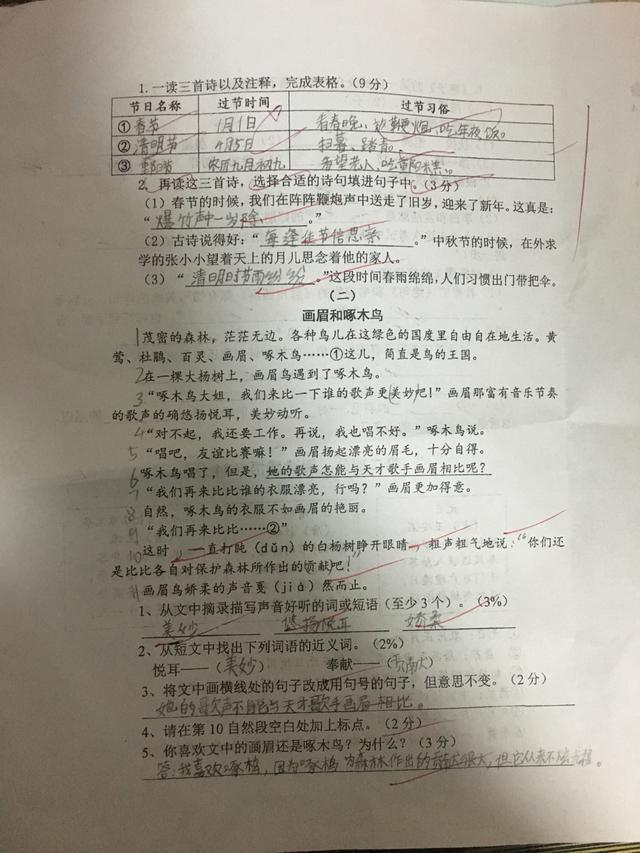 1.一读三首诗以及注释，完成表格。（9分）
节日名称 过节时间 过节习俗
①春节 1月1日 看春晚、放鞭炮、吃年夜饭。
②清明节 4月5日 扫墓、踏青。
③重阳节 农历九月初九
2、再读这三首诗，选择合适的诗句填进句子中。（3分）
（1）春节的时候，我们在阵阵鞭炮声中送走了旧岁，迎来了新年。这真是：
“爆竹声中一岁除。”
（2）古诗说得好：“每逢佳节倍思亲。”中秋节的时候，在外求
学的张小小望着天上的月儿思念着他的家人。
（3）“清明时节雨纷纷。”这段时间春雨绵绵，人们习惯出门带把伞。
（二）
画眉和啄木鸟
1茂密的森林，茫茫无边。各种鸟儿在这绿色的国度里自由自在地生活。黄
莺、杜鹃、百灵、画眉、啄木鸟……①这儿，简直是鸟的王国。
2在一棵大杨树上，画眉鸟遇到了啄木鸟。
3“啄木鸟大姐，我们来比一下谁的歌声更美妙吧！”画眉那富有音乐节奏
的歌声的确悠扬悦耳，美妙动听。
4“对不起，我还要工作。再说，我也唱不好。”啄木鸟说。
5“唱吧，友谊比赛嘛！”画眉扬起漂亮的眉毛，十分自得。
6啄木鸟唱了，但是，她的歌声怎能与天才歌手画眉相比呢？
7“我们再来比比谁的衣服漂亮，行吗？”画眉更加得意。
8自然，啄木鸟的衣服不如画眉的艳丽。
9“我们再来比比……②”
10这时，一直打盹（dǔn）的白杨树睁开眼睛，粗声粗气地说：“你们还
是比比各自对保护森林所作出的贡献吧！”
11画眉鸟娇柔的声音戛（jiá）然而止。
1、从文中摘录描写声音好听的词或短语（至少3个）。（3%）
美妙 悠扬悦耳 娇柔
2、从短文中找出下列词语的近义词。（2%）
悦耳——（美妙） 奉献——（贡献）
3、将文中画横线处的句子改成用句号的句子，但意思不变。（2分）
她的歌声不能与天才歌手画眉相比。
4、请在第10自然段空白处加上标点。（2分）
5、你喜欢文中的画眉还是啄木鸟？为什么？（3分）
答：我喜欢啄木鸟，因为啄木鸟为森林作出的贡献很大，但它从来不